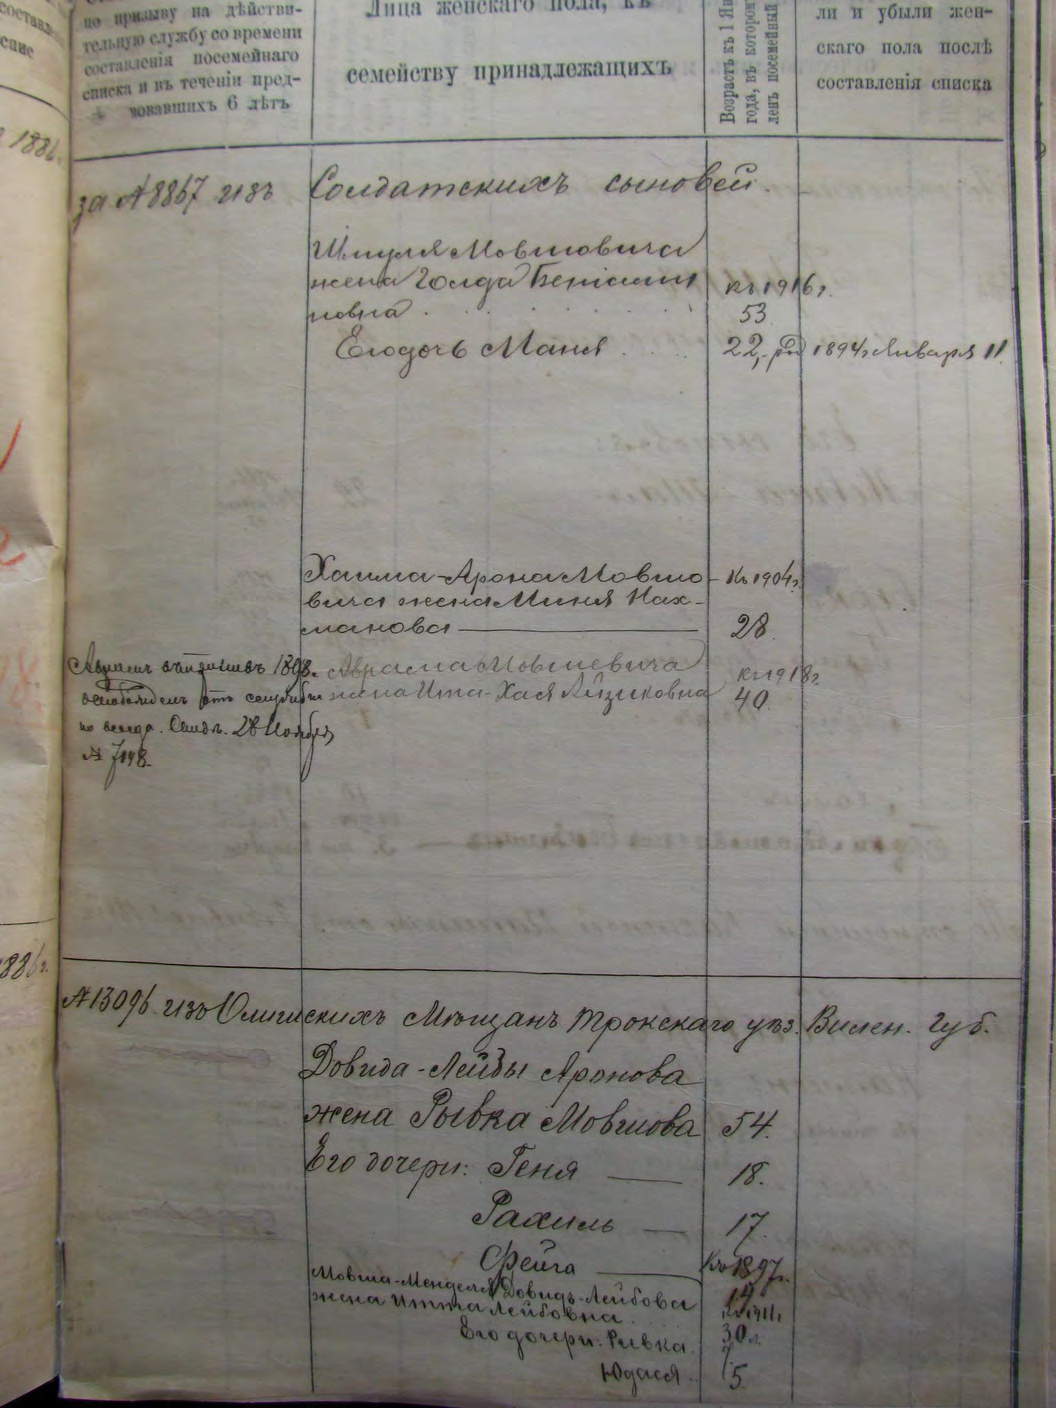 составл
спис
по призыву на дѣйстви-
тельную службу со времени
составленія посемейнаго
списка и въ теченіи пред-
вовавшихъ 6 лѣтъ
Лица женскаго пола, къ
семейству принадлежащихъ
Возрастъ къ 1 Ян
года, въ которомъ
ленъ посемейный
ли и убыли жен-
скаго пола послѣ
составленія списка
за № 8867 изъ Солдатскихъ сыновей.
Шмуля Мовшовича
жена Голда Беніамин къ 1916 г.
новна 53
Его дочь Маня 22, р. 1894 г. Января 11.
Хаима-Арона Мовшо- къ 1904 г.
вича жена Миня Нах-
манова 28
Абрама Мовшевича къ 1918 г.
жена Ита-Хая Айзиковна 40
1898.
освобожденъ отъ службы
по всегда. 28 Ноября
№ 7148.
№ 13096 изъ Олитскихъ Мѣщанъ Трокскаго уѣз. Вилен. Губ.
Довида-Лейбы Аронова
жена Рывка Мовшова 54.
Его дочери: Геня 18.
Рахиль 17.
Фейга къ 1897 г.
Мовша-Менделя Довидъ-Лейбова 14
жена Итта Лейбовна къ 1911 г.
30 л.
Его дочери: Ривка 7
Юдася 5